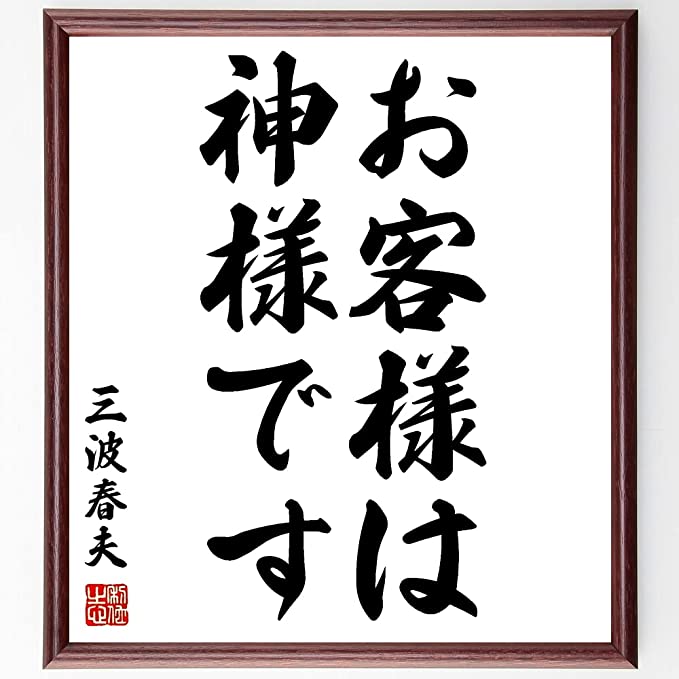 お客様は
神様です
三波春夫